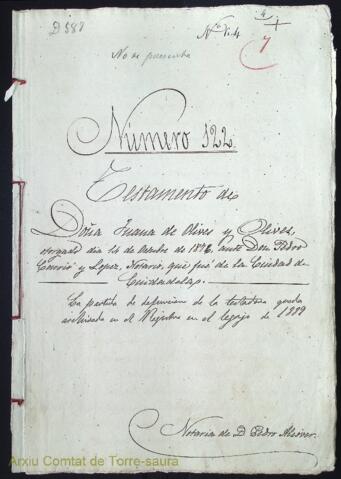 D 587
Nº 4
4
7
No se presenta
Número 122.
Testamento de
Doña Juana de Olives y Olives,
otorgado dia 14 de Octubre de 1876 ante Don Pedro
y Lopez, Notario, que fué de la Ciudad de
Ciudadela.
La partida de defuncion de la testadora queda
archivada en el Registro en el legajo de 1889
Notaria de D. Pedro Alcover.
Arxiu Comtat de Torre-saura